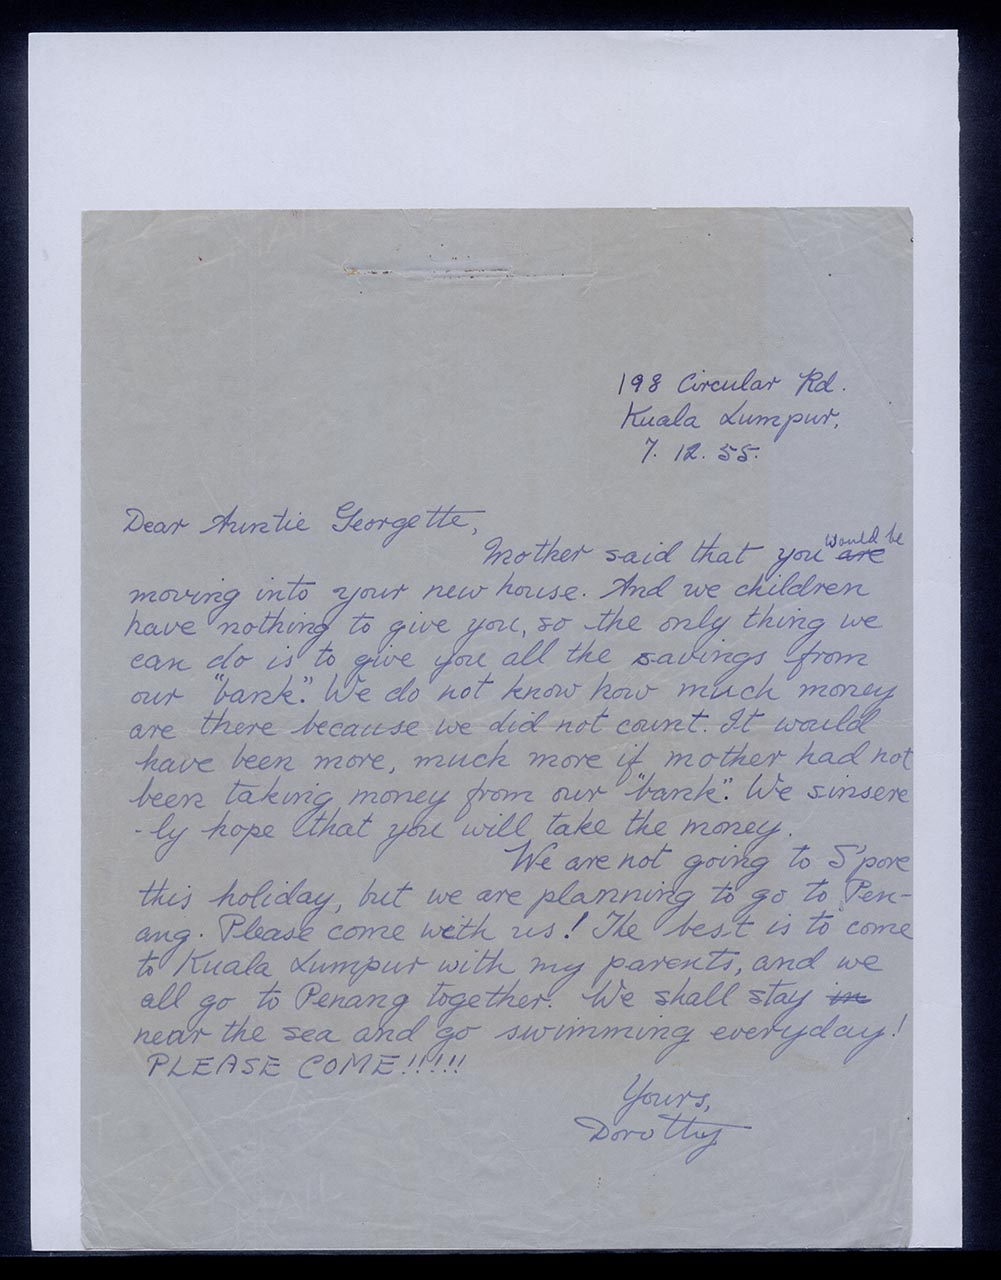 198 Circular Rd.
Kuala Lumpur,
7. 12. 55.
Dear Auntie Georgette,
would be
Mother said that you are
moving into your new house. And we children
have nothing to give you, so the only thing we
can do is to give you all the savings from
our "bank". We do not know how much money
are there because we did not count. It would
have been more, much more if mother had not
been taking money from our "bank". We sinsere
-ly hope that you will take the money.
We are not going to S'pore
this holiday, but we are planning to go to Pen-
ang. Please come with us! The best is to come
to Kuala Lumpur with my parents, and we
all go to Penang together. We shall stay in
near the sea and go swimming everyday!
PLEASE COME!!!!!!
Yours,
Dorothy